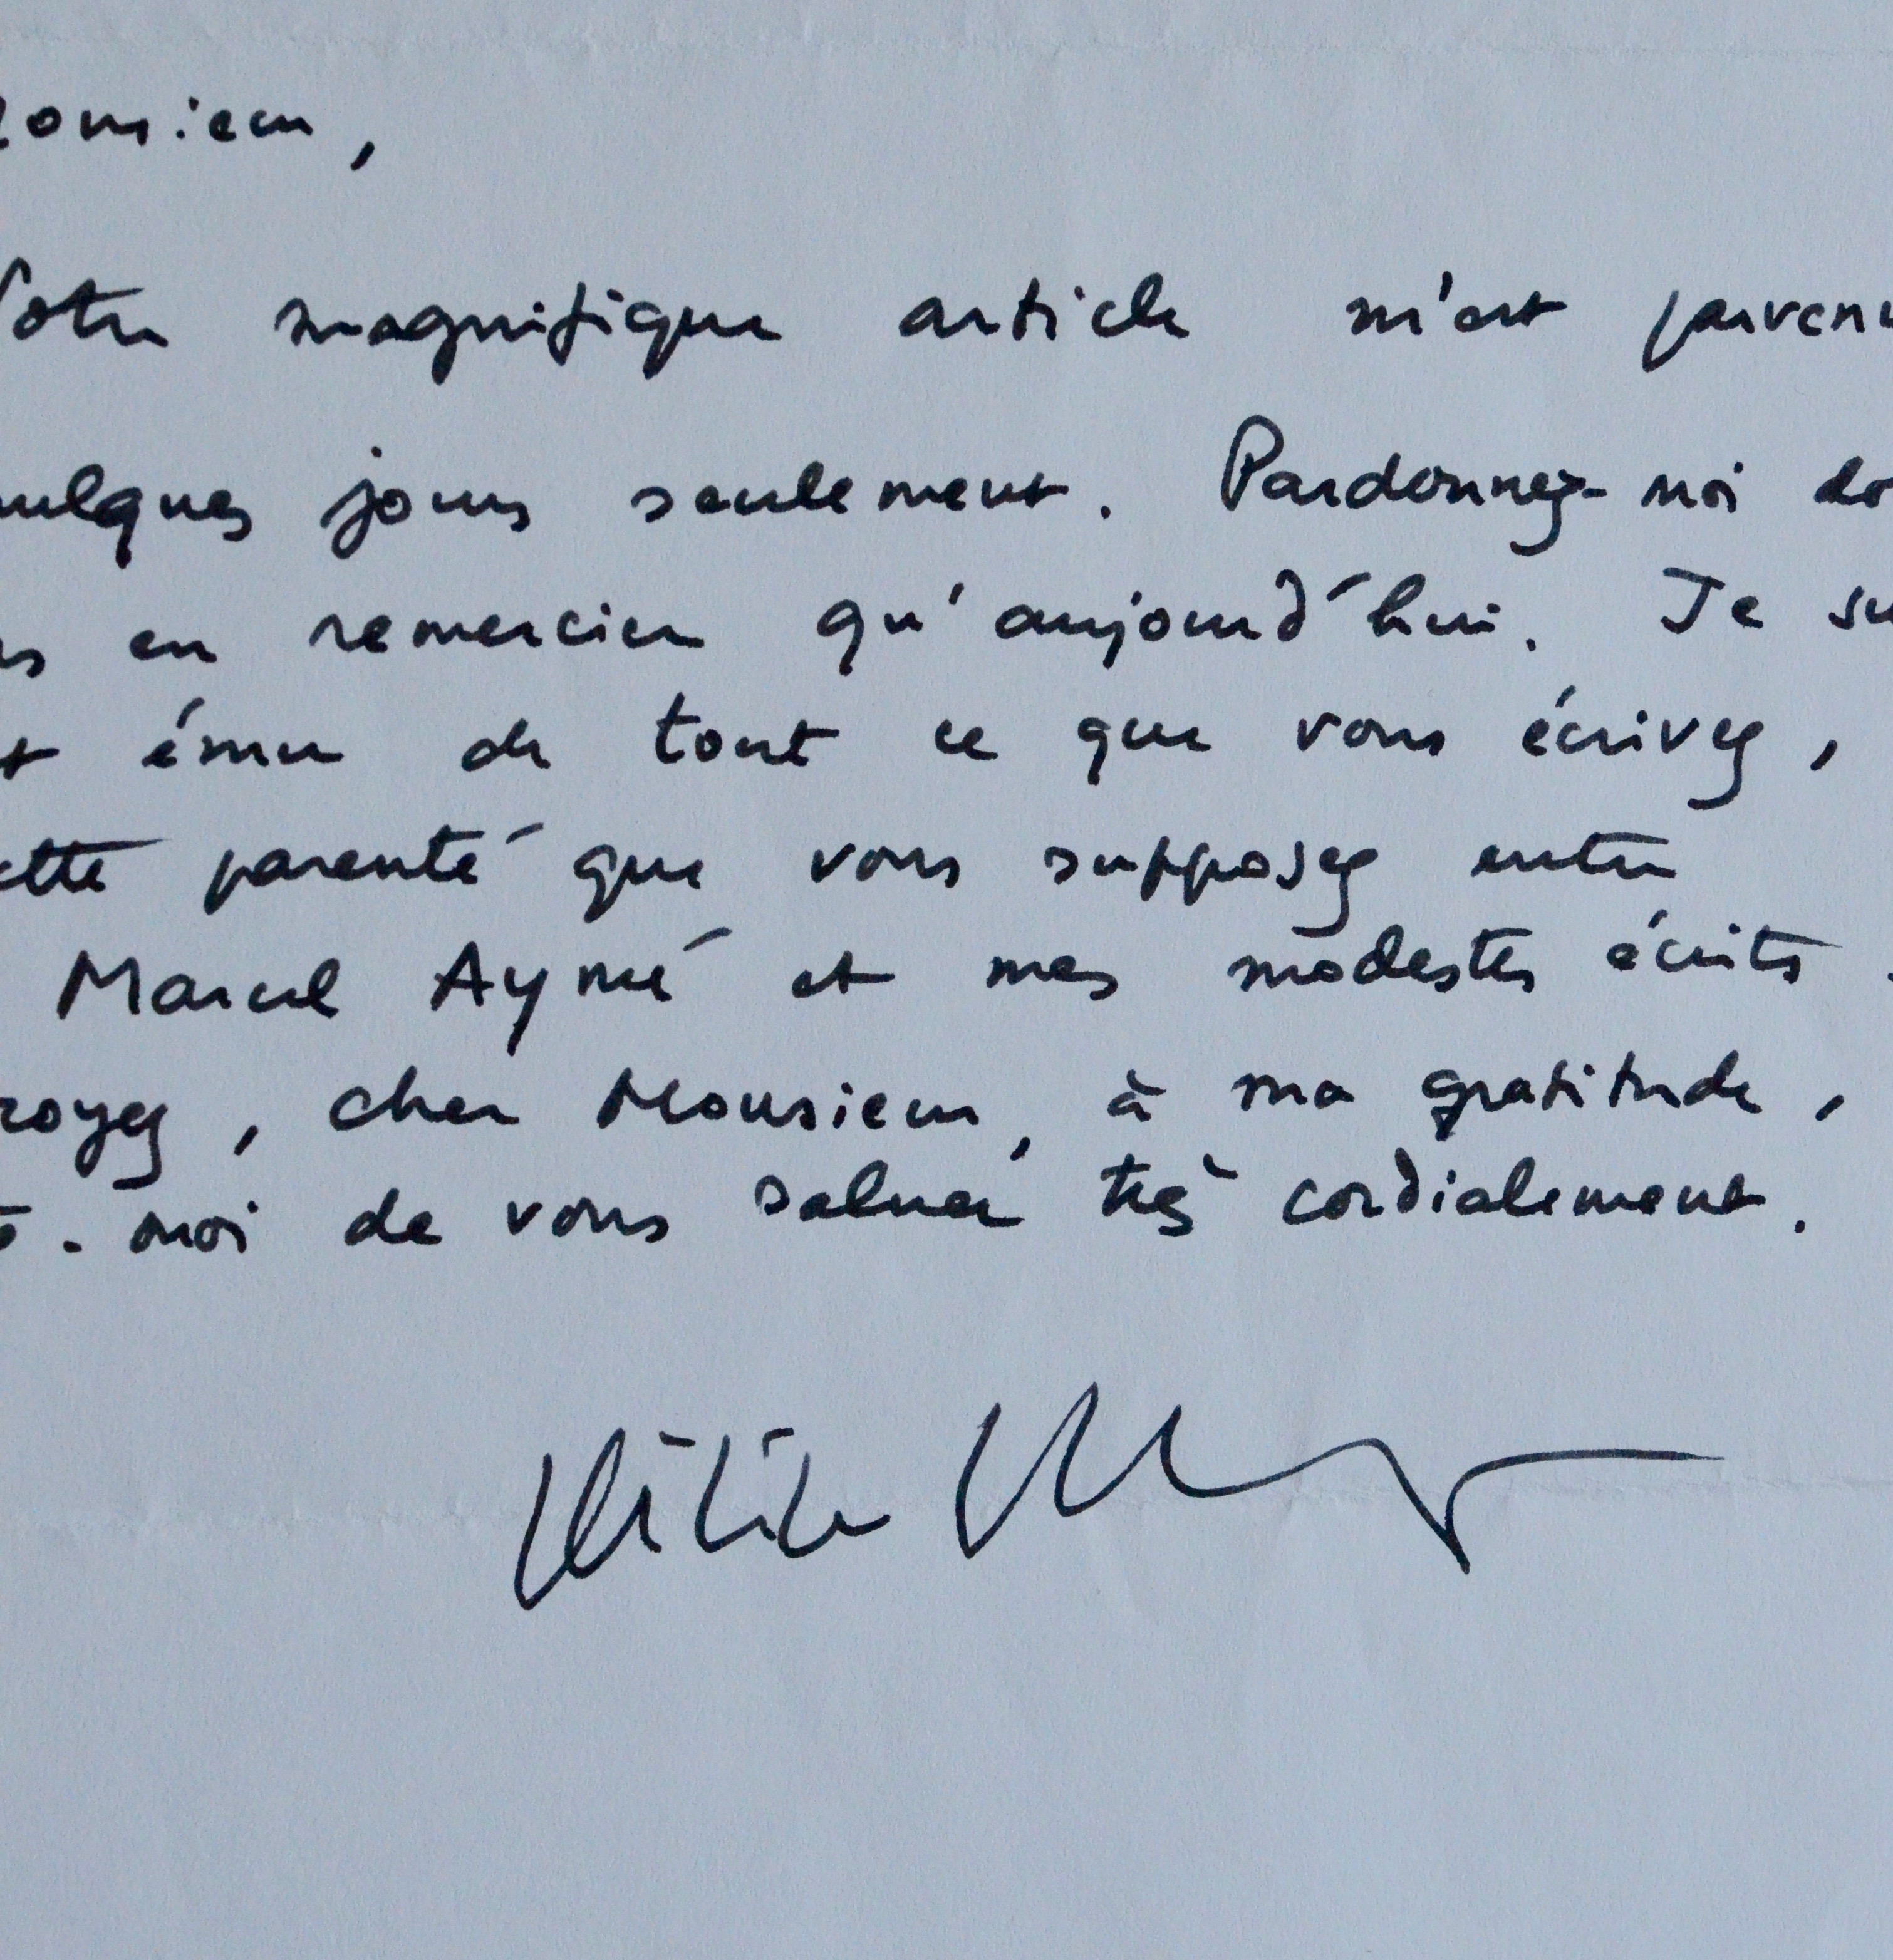 onsieur,
Votre magnifique article m'est parvenu
uelques jours seulement. Pardonnez-moi do
s en remercier qu'aujourd'hui. Je su
t ému de tout ce que vous écrivez,
ette parenté que vous supposez entre
Marcel Aymé et mes modestes écrits.
royez, cher Monsieur, à ma gratitude,
-moi de vous saluer très cordialement.